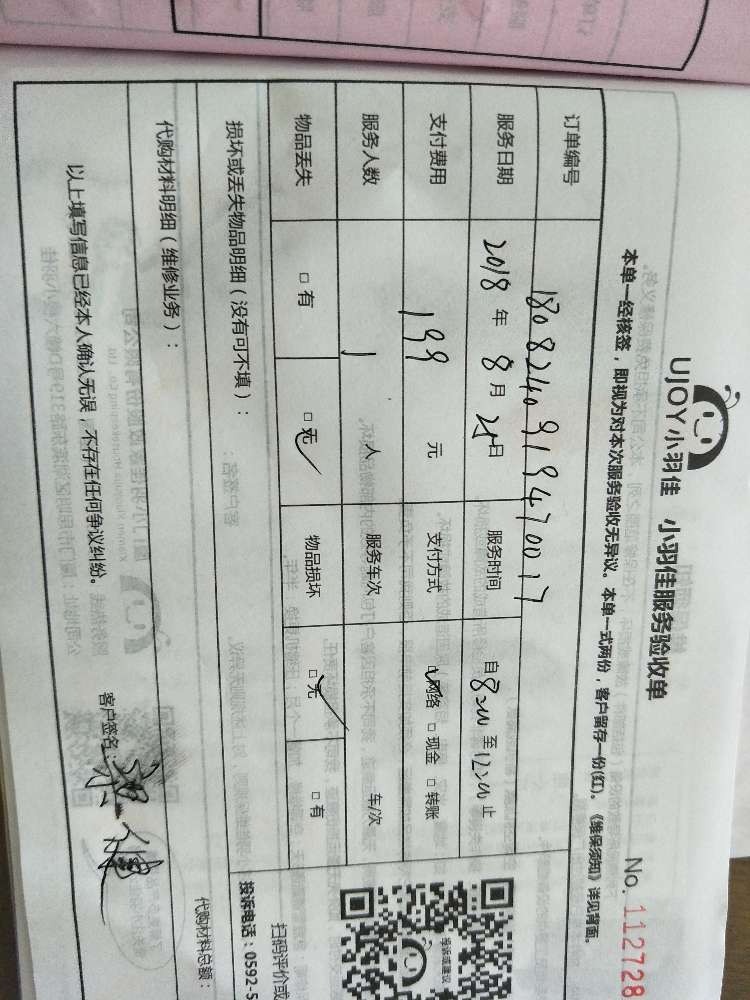 UJOY小羽佳 小羽佳服务验收单
No. 112728
本单一经核签，即视为对本次服务验收无异议。本单一式两份，客户留存一份(红)。《维保须知》详见背面。
订单编号 18082409194700 17
服务日期 2018 年 8 月 25日 服务时间 自 8:00 至 12:00 止
支付费用 199 元 支付方式 网络 □ 现金 □ 转账
服务人数 1 人 服务车次 车/次
物品丢失 □ 有 □ 无 物品损坏 □ 无 □ 有
损坏或丢失物品明细（没有可不填）：
扫码评价或
投诉电话：0592-5
代购材料明细（维修业务）：
代购材料总额：
以上填写信息已经本人确认无误，不存在任何争议纠纷。
客户签名：